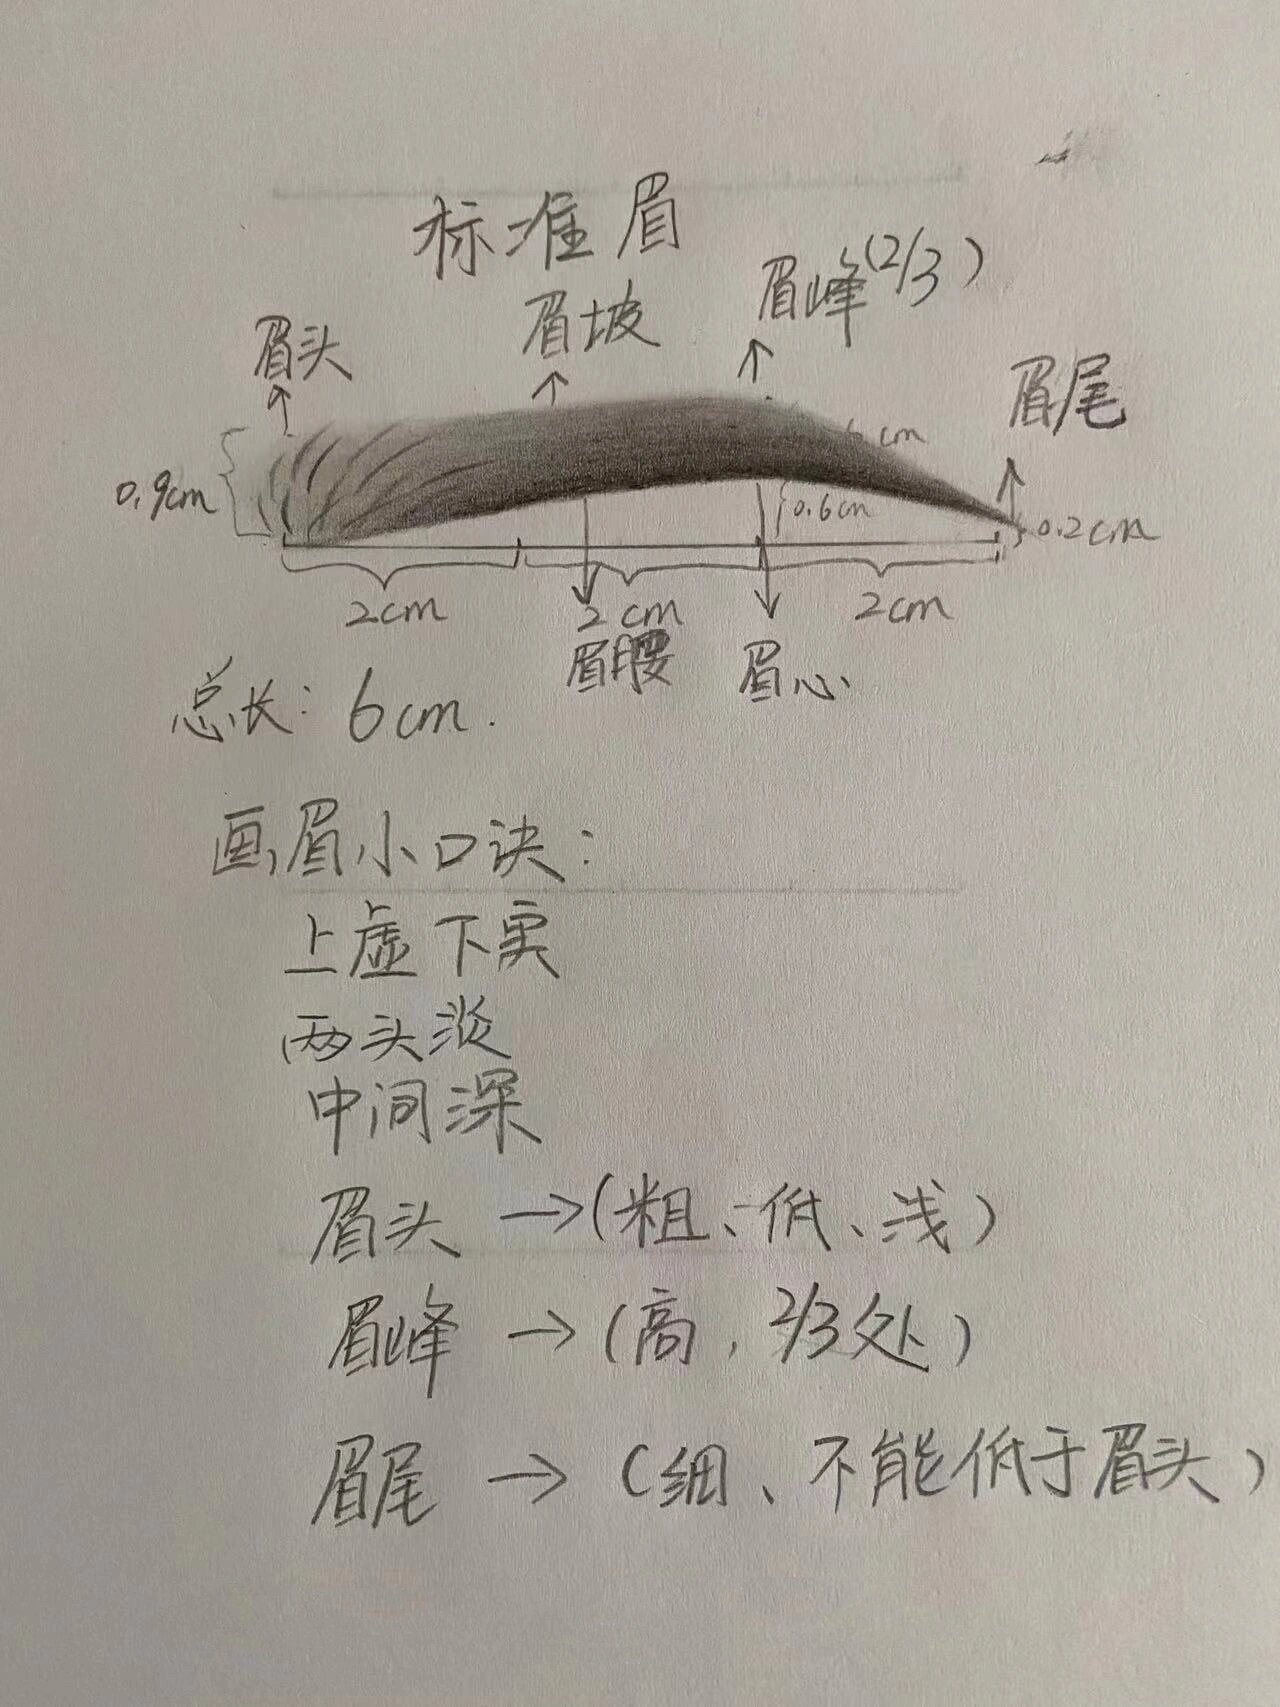 标准眉
眉峰(2/3)
眉坡
眉头
眉尾
6cm
0.9cm
0.6cm
0.2cm
2cm
2cm
2cm
眉腰
眉心
总长：6cm.
画眉小口诀：
上虚下实
两头淡
中间深
眉头→(粗、低、浅)
眉峰→(高，2/3处)
眉尾→(细、不能低于眉头)